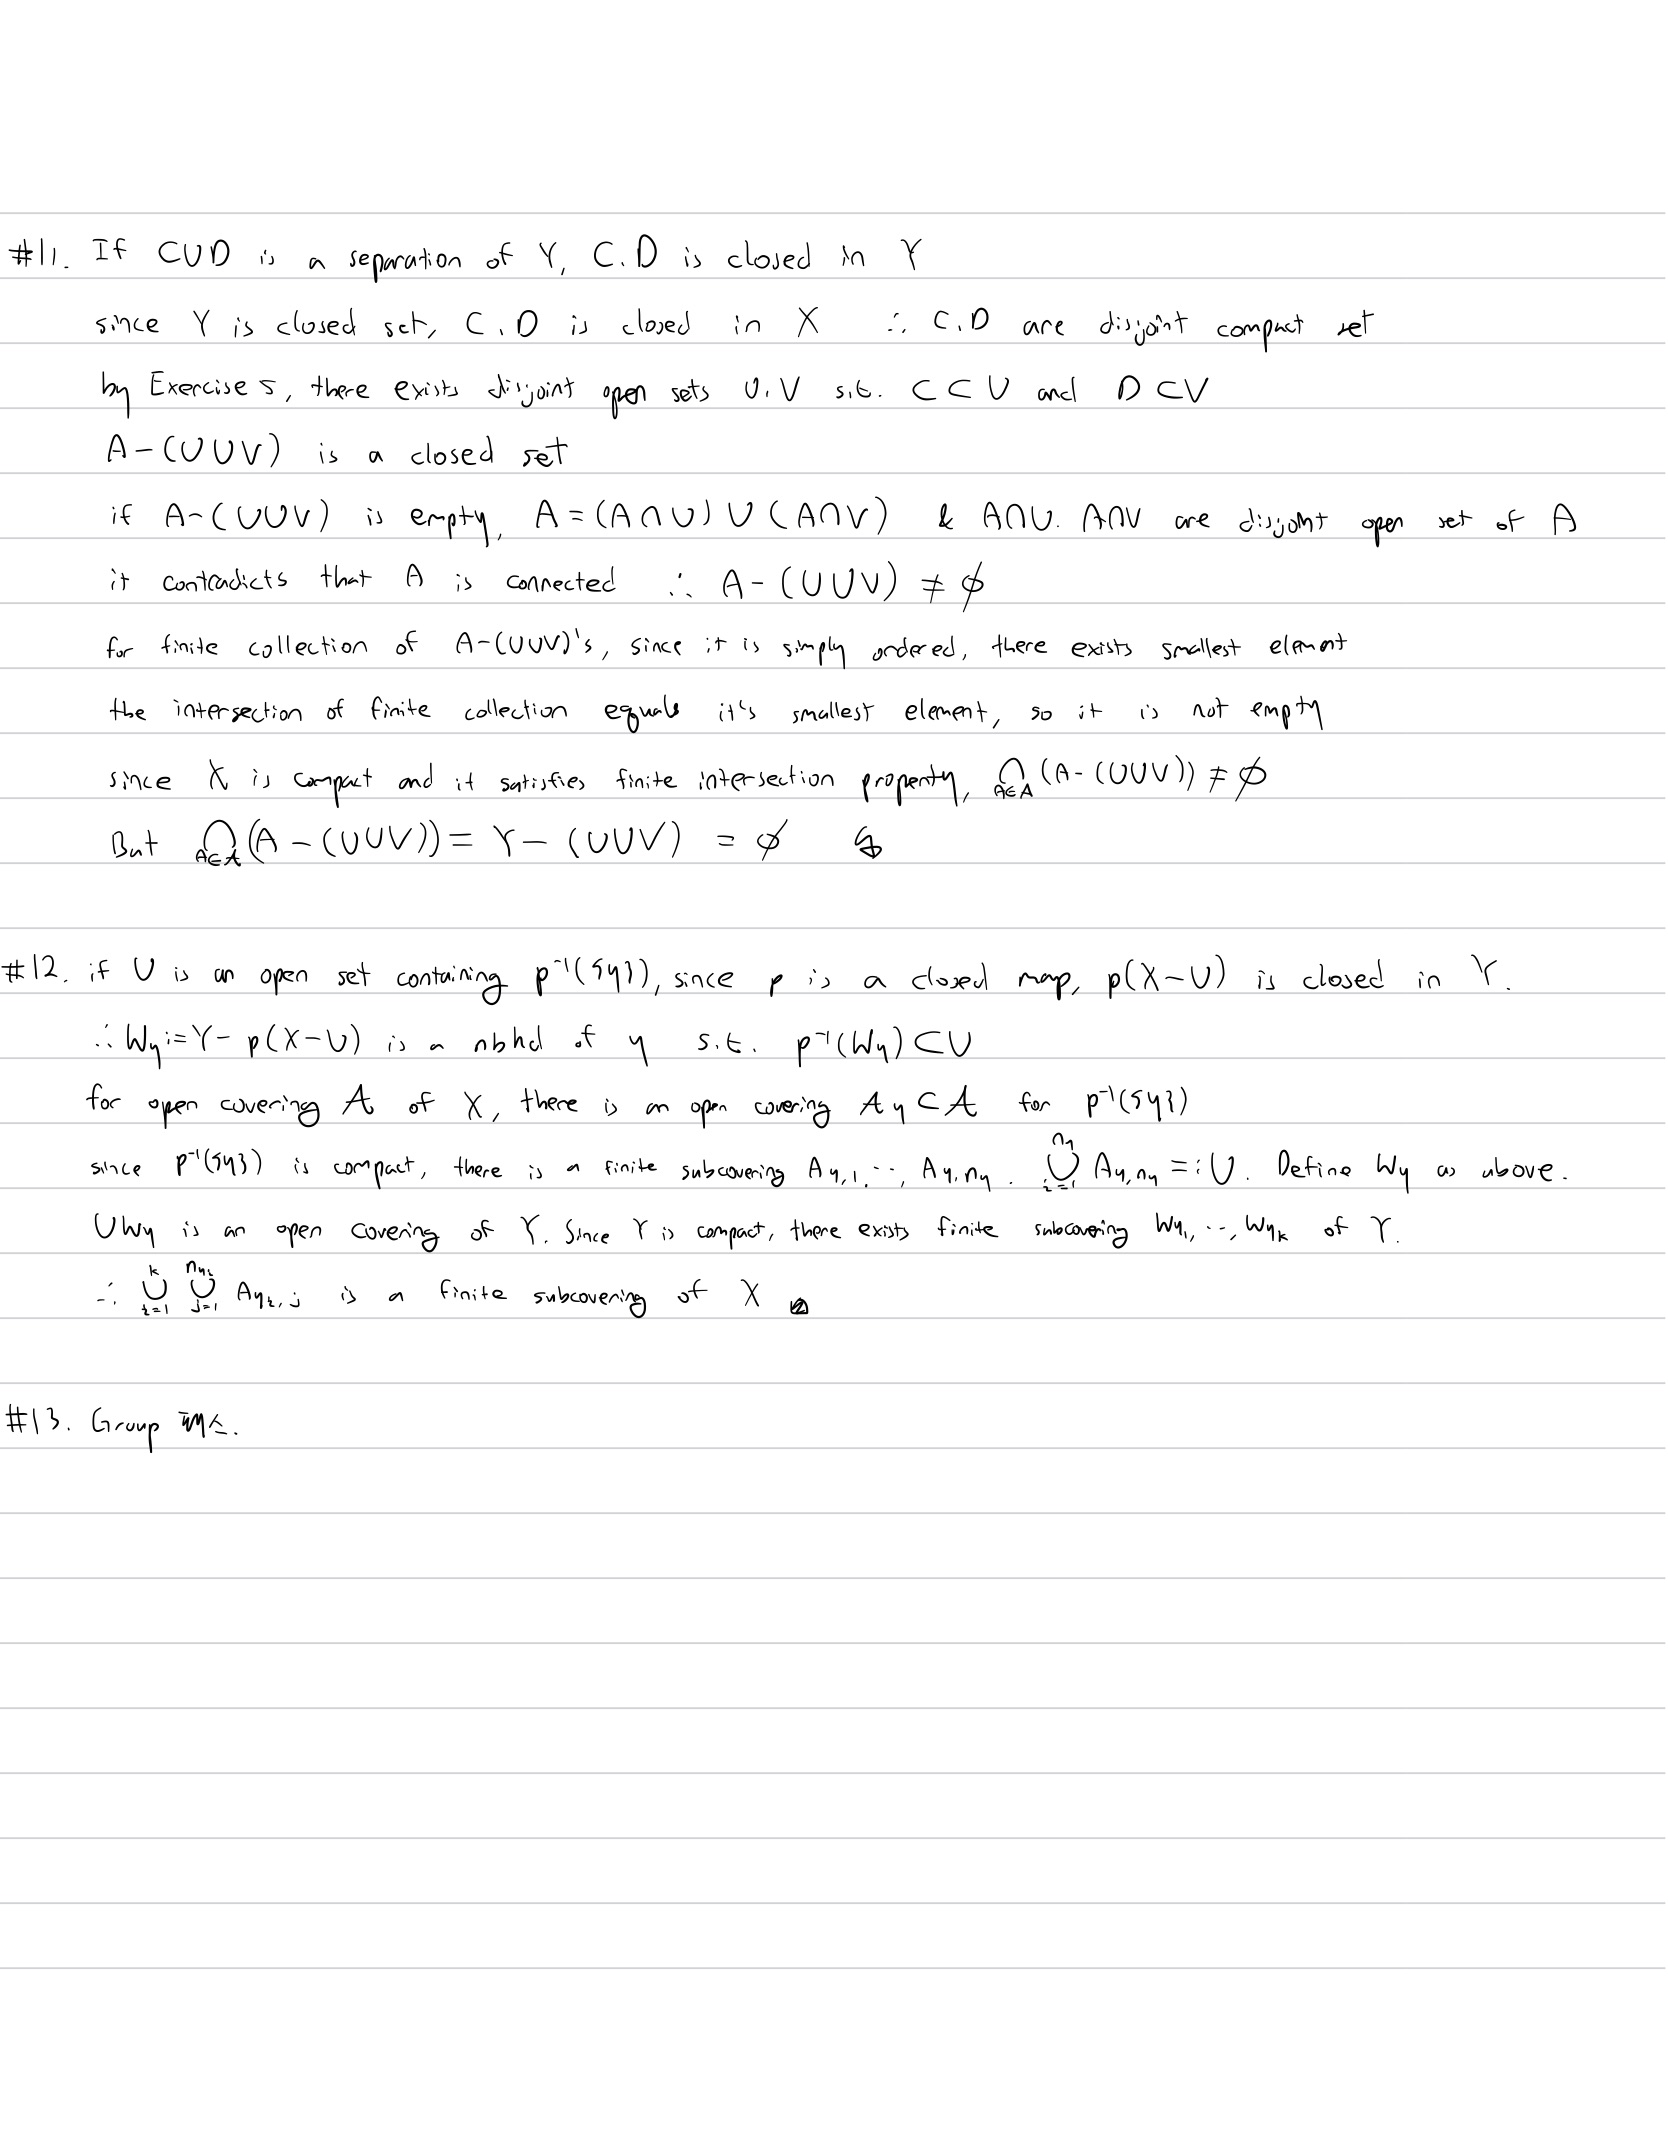 #11. If C∪D is a separation of Y, C.D is closed in Y
since Y is closed set, C.D is closed in X ∴ C.D are disjoint compact set
by Exercise 5, there exists disjoint open sets U.V s.t. C⊂U and D⊂V
A-(U∪V) is a closed set
if A-(U∪V) is empty, A=(A∩U)∪(A∩V) & A∩U. A∩V are disjoint open set of A
it contradicts that A is connected ∴ A-(U∪V) ≠ ∅
for finite collection of A-(U∪V)'s, since it is simply ordered, there exists smallest element
the intersection of finite collection equals it's smallest element, so it is not empty
since X is compact and it satisfies finite intersection property, ⋂_{A∈𝒜} (A-(U∪V)) ≠ ∅
But ⋂_{A∈𝒜} (A-(U∪V)) = Y-(U∪V) = ∅ ↯
#12. if U is an open set containing p⁻¹({y}), since p is a closed map, p(X-U) is closed in Y.
∴ Wy:=Y-p(X-U) is a nbhd of y s.t. p⁻¹(Wy)⊂U
for open covering 𝒜 of X, there is an open covering 𝒜y⊂𝒜 for p⁻¹({y})
since p⁻¹({y}) is compact, there is a finite subcovering A_{y,1}, ⋯, A_{y,n_y}. ⋃_{i=1}^{n_y} A_{y,n_y} =: U. Define Wy as above.
∪Wy is an open covering of Y. Since Y is compact, there exists finite subcovering W_{y_1}, ⋯, W_{y_k} of Y.
∴ ⋃_{i=1}^{k} ⋃_{j=1}^{n_{y_i}} A_{y_i,j} is a finite subcovering of X
#13. Group 패스.